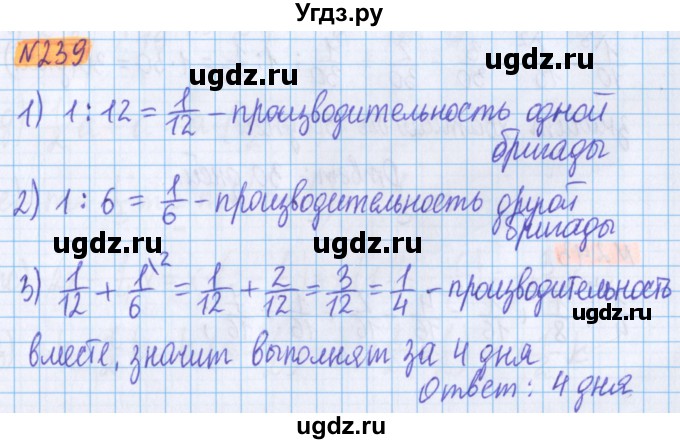 Угдз.ру
№239
ugdz.ru ugdz.ru
1) 1 : 12 = 1/12 – производительность одной
бригады
2) 1 : 6 = 1/6 – производительность другой
бригады
ugdz.ru ugdz.ru
3) 1/12 + 1/6 \2 = 1/12 + 2/12 = 3/12 = 1/4 – производительность
вместе, значит выполнят за 4 дня
Ответ: 4 дня.
ugdz.ru